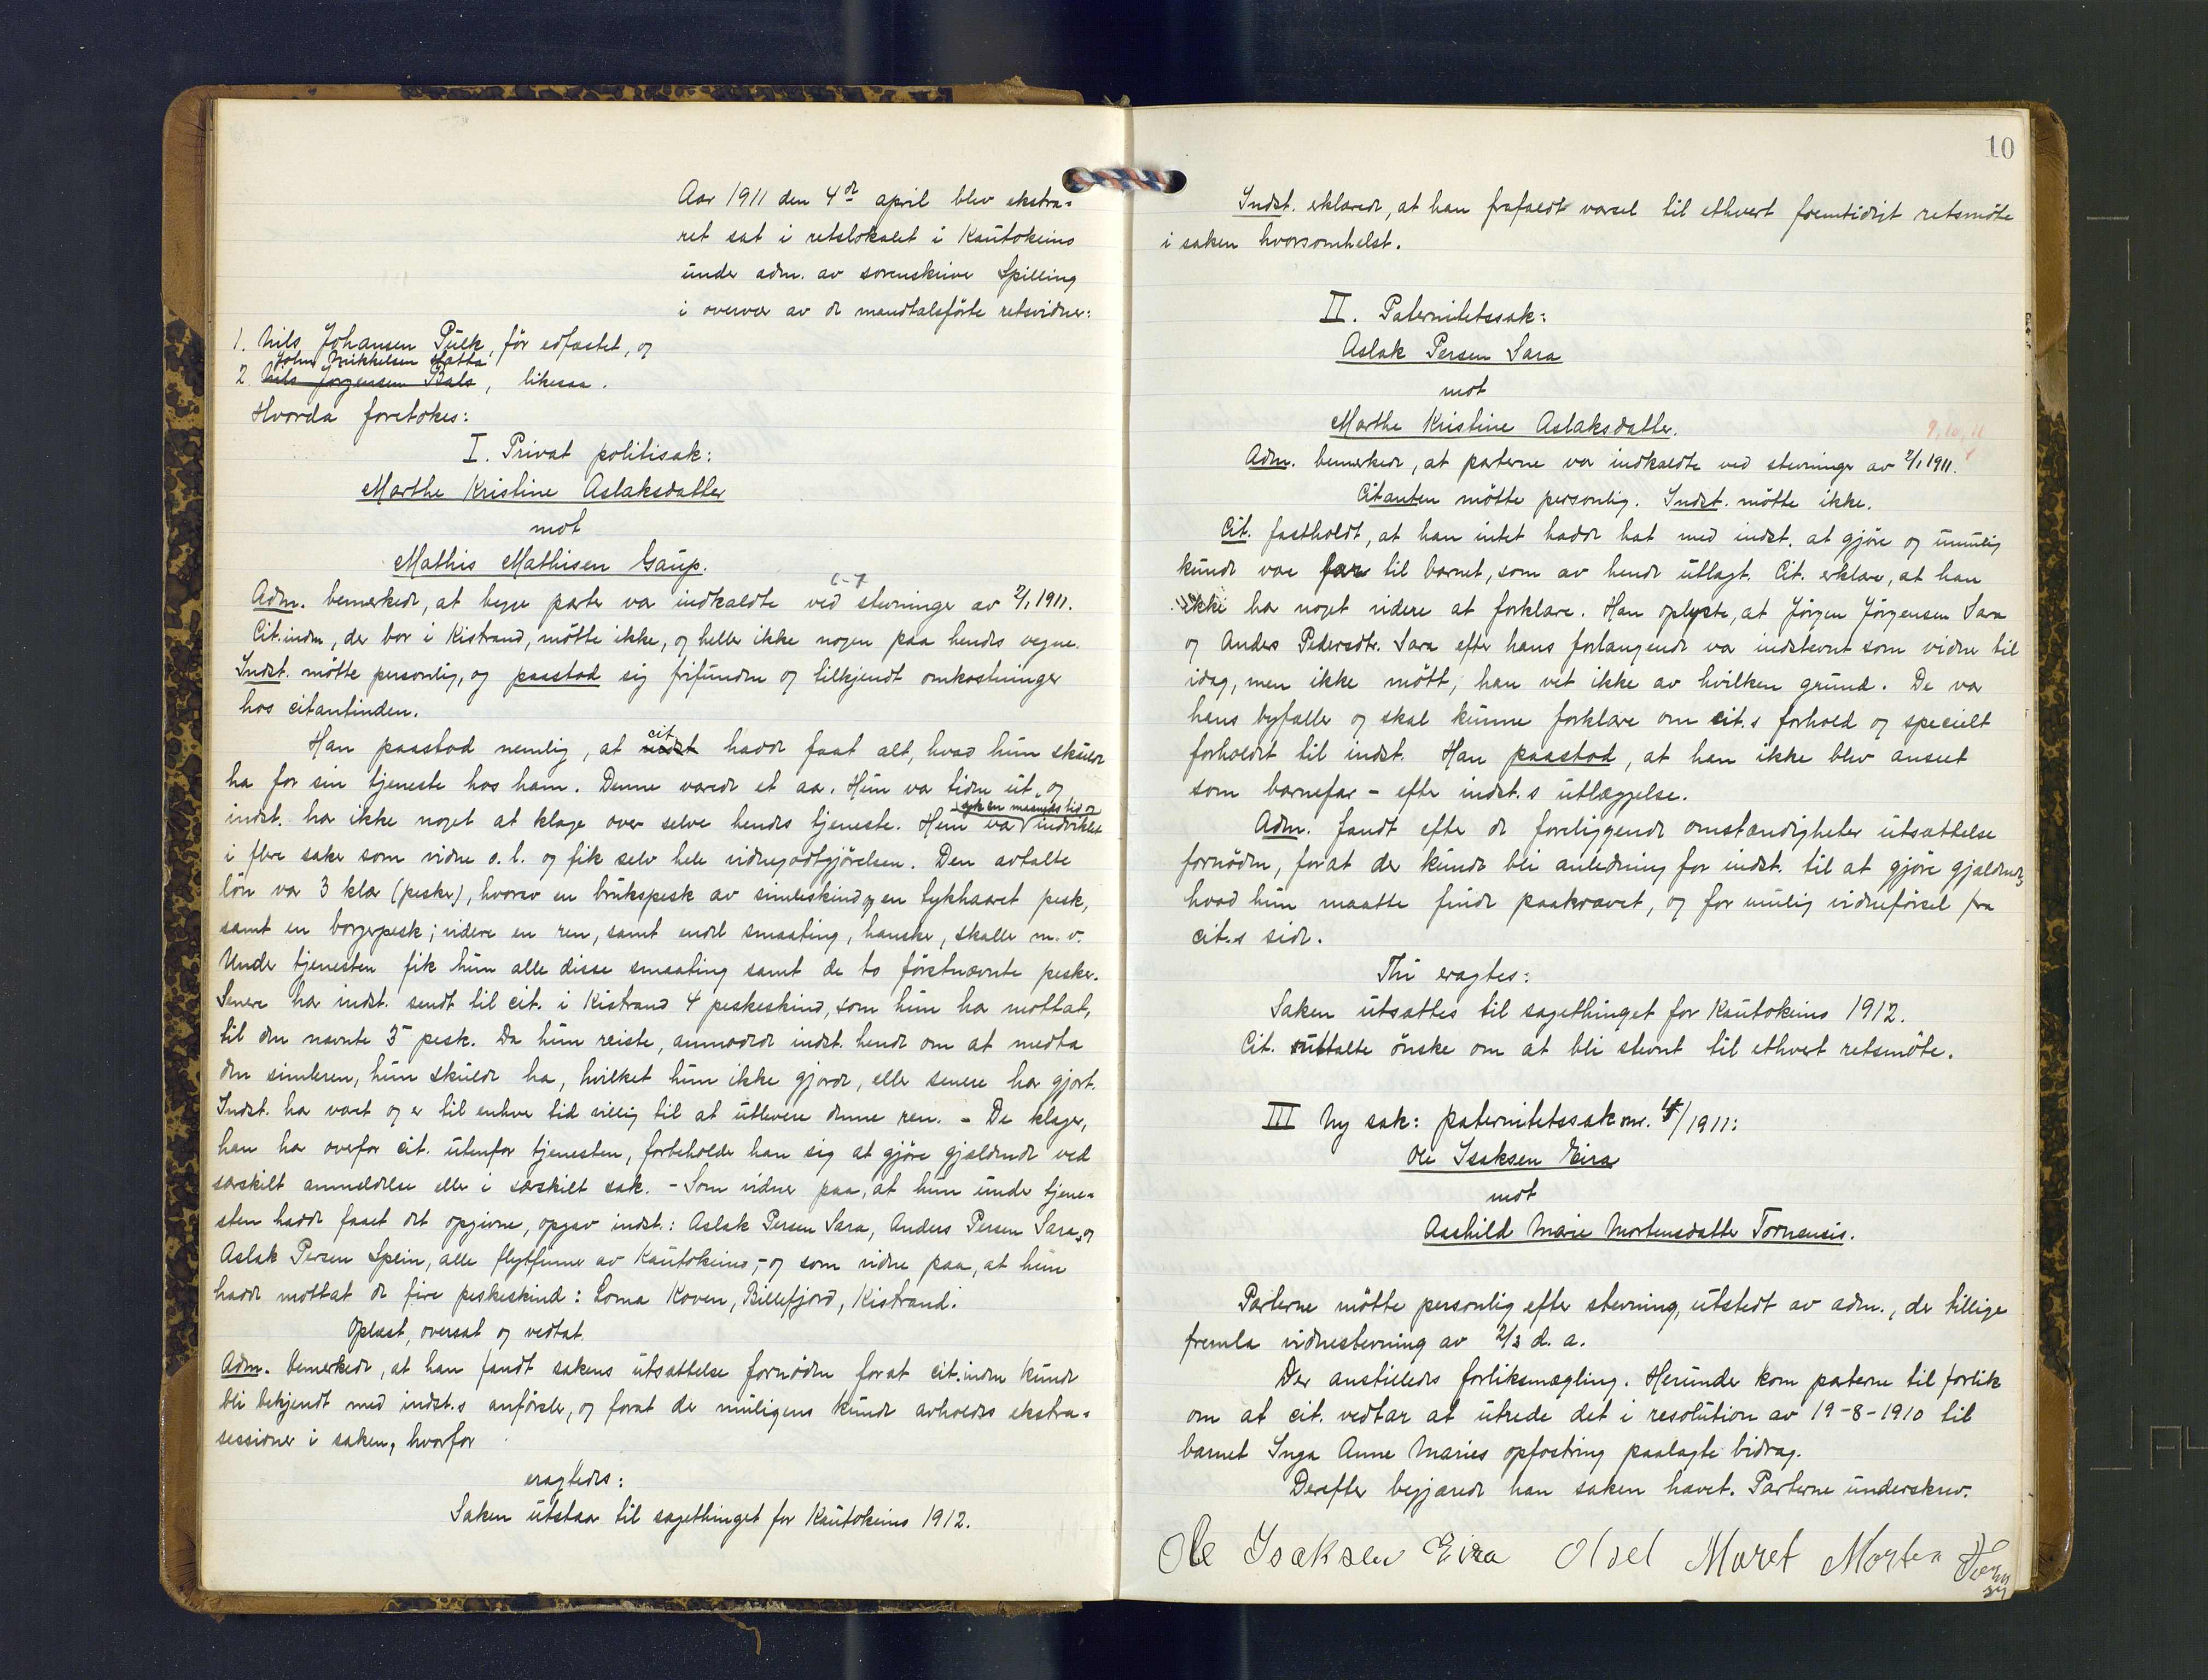 Aar 1911 den 4de april blev ekstra-
ret sat i retslokalet i Kautokeino
under adm. av sorenskriver Spilling
i overvær av de mandtalsførte retsvidner:
1. Nils Johansen Pulk, før edfæstet, og
John Mikkelsen Hætta
2. Nils Jørgensen Bals, likesaa.
Hvorda foretokes:
I. Privat politisak:
Marthe Kristine Aslaksdatter
mot
Mathis Mathisen Gaup.
6-7
Adm. bemerkede, at begge parter var indkaldte ved stevninger av 2/1 1911.
Cit.inden, der bor i Kistrand, møtte ikke, og heller ikke nogen paa hendes vegne.
Indst. møtte personlig, og paastod sig frifunden og tilkjendt omkostninger
hos citantinden.
Han paastod nemlig, at indst cit. hadde faat alt, hvad hun skulde
ha for sin tjeneste hos ham. Denne varede et aar. Hun var tiden ut, og
indst. har ikke noget at klage over selve hendes tjeneste. Hun var syk en maaneds tid og indviklet
i flere saker som vidne o. l. og fik selv hele vidnegodtgjørelsen. Den avtalte
løn var 3 klær (pesker), hvorav en brukspesk av simleskind og en tykhaaret pesk,
samt en borgerpesk; videre en ren, samt endel smaating, hansker, skaller m. v.
Under tjenesten fik hun alle disse smaating samt de to førstnævnte pesker.
Senere har indst. sendt til cit. i Kistrand 4 peskeskind, som hun har mottat,
til den nævnte 3die pesk. Da hun reiste, anmodede indst. hende om at medta
den simleren, hun skulde ha, hvilket hun ikke gjorde, eller senere har gjort.
Indst. har været og er til enhver tid villig til at utlevere denne ren. - De klager,
han har overfor cit. utenfor tjenesten, forbeholder han sig at gjøre gjældende ved
særskilt anmeldelse eller i særskilt sak. - Som vidner paa, at hun under tjene-
sten hadde faaet det opgivne, opgav indst.: Aslak Persen Sara, Anders Persen Sara, og
Aslak Persen Spein, alle flytfinner av Kautokeino, - og som vidne paa, at hun
hadde mottat de fire peskeskind: Loma Koven, Billefjord, Kistrand.
Oplæst, oversat og vedtat.
Adm. bemerkede, at han fandt sakens utsættelse fornøden forat cit.inden kunde
bli bekjendt med indst.s anførsler, og forat der muligens kunde avholdes ekstra-
sessioner i saken, hvorfor
eragtedes:
Saken utstaar til sagethinget for Kautokeino 1912.
10
Indst. erklærede, at han frafaldt varsel til ethvert fremtidigt retsmøte
i saken hvorsomhelst.
II. Paternitetssak:
Aslak Persen Sara
mot
Marthe Kristine Aslaksdatter.
9, 10, 11
Adm. bemerkede, at parterne var indkaldte ved stevninger av 2/1 1911.
Citanten møtte personlig. Indst. møtte ikke.
Cit. fastholdt, at han intet hadde hat med indst. at gjøre og umulig
kunde være far til barnet, som av hende utlagt. Cit. erklærer, at han
ikke har noget videre at forklare. Han oplyste, at Jørgen Jørgensen Sara
og Anders Pedersdtr. Sara efter hans forlangende var indstevnt som vidner til
idag, men ikke møtt; han vet ikke av hvilken grund. De var
hans byfæller og skal kunne forklare om cit.s forhold og specielt
forholdet til indst. Han paastod, at han ikke blev anseet
som barnefar - efter indst.s utlæggelse.
Adm. fandt efter de foreliggende omstændigheter utsættelse
fornøden, forat der kunde bli anledning for indst. til at gjøre gjældende,
hvad hun maatte finde paakrævet, og for mulig vidneførsel fra
cit.s side.
Thi eragtes:
Saken utsættes til sagethinget for Kautokeino 1912.
Cit. uttalte ønske om at bli stevnt til ethvert retsmøte.
III Ny sak: paternitetssak nr. 4/1911:
Ole Isaksen Eira
mot
Aashild Marie Mortensdatter Tornensis.
Parterne møtte personlig efter stevning, utstedt av adm., der tillige
fremla vidnestevning av 2/3 d. a.
Der anstilledes forliksmægling. Herunder kom parterne til forlik
om at cit. vedtar at utrede det i resolution av 19-8-1910 til
barnet Inga Anne Maries opfostring paalagte bidrag.
Derefter begjærede han saken hævet. Parterne underskrev.
Ole Isaksen Eira Olsel Maret Morten